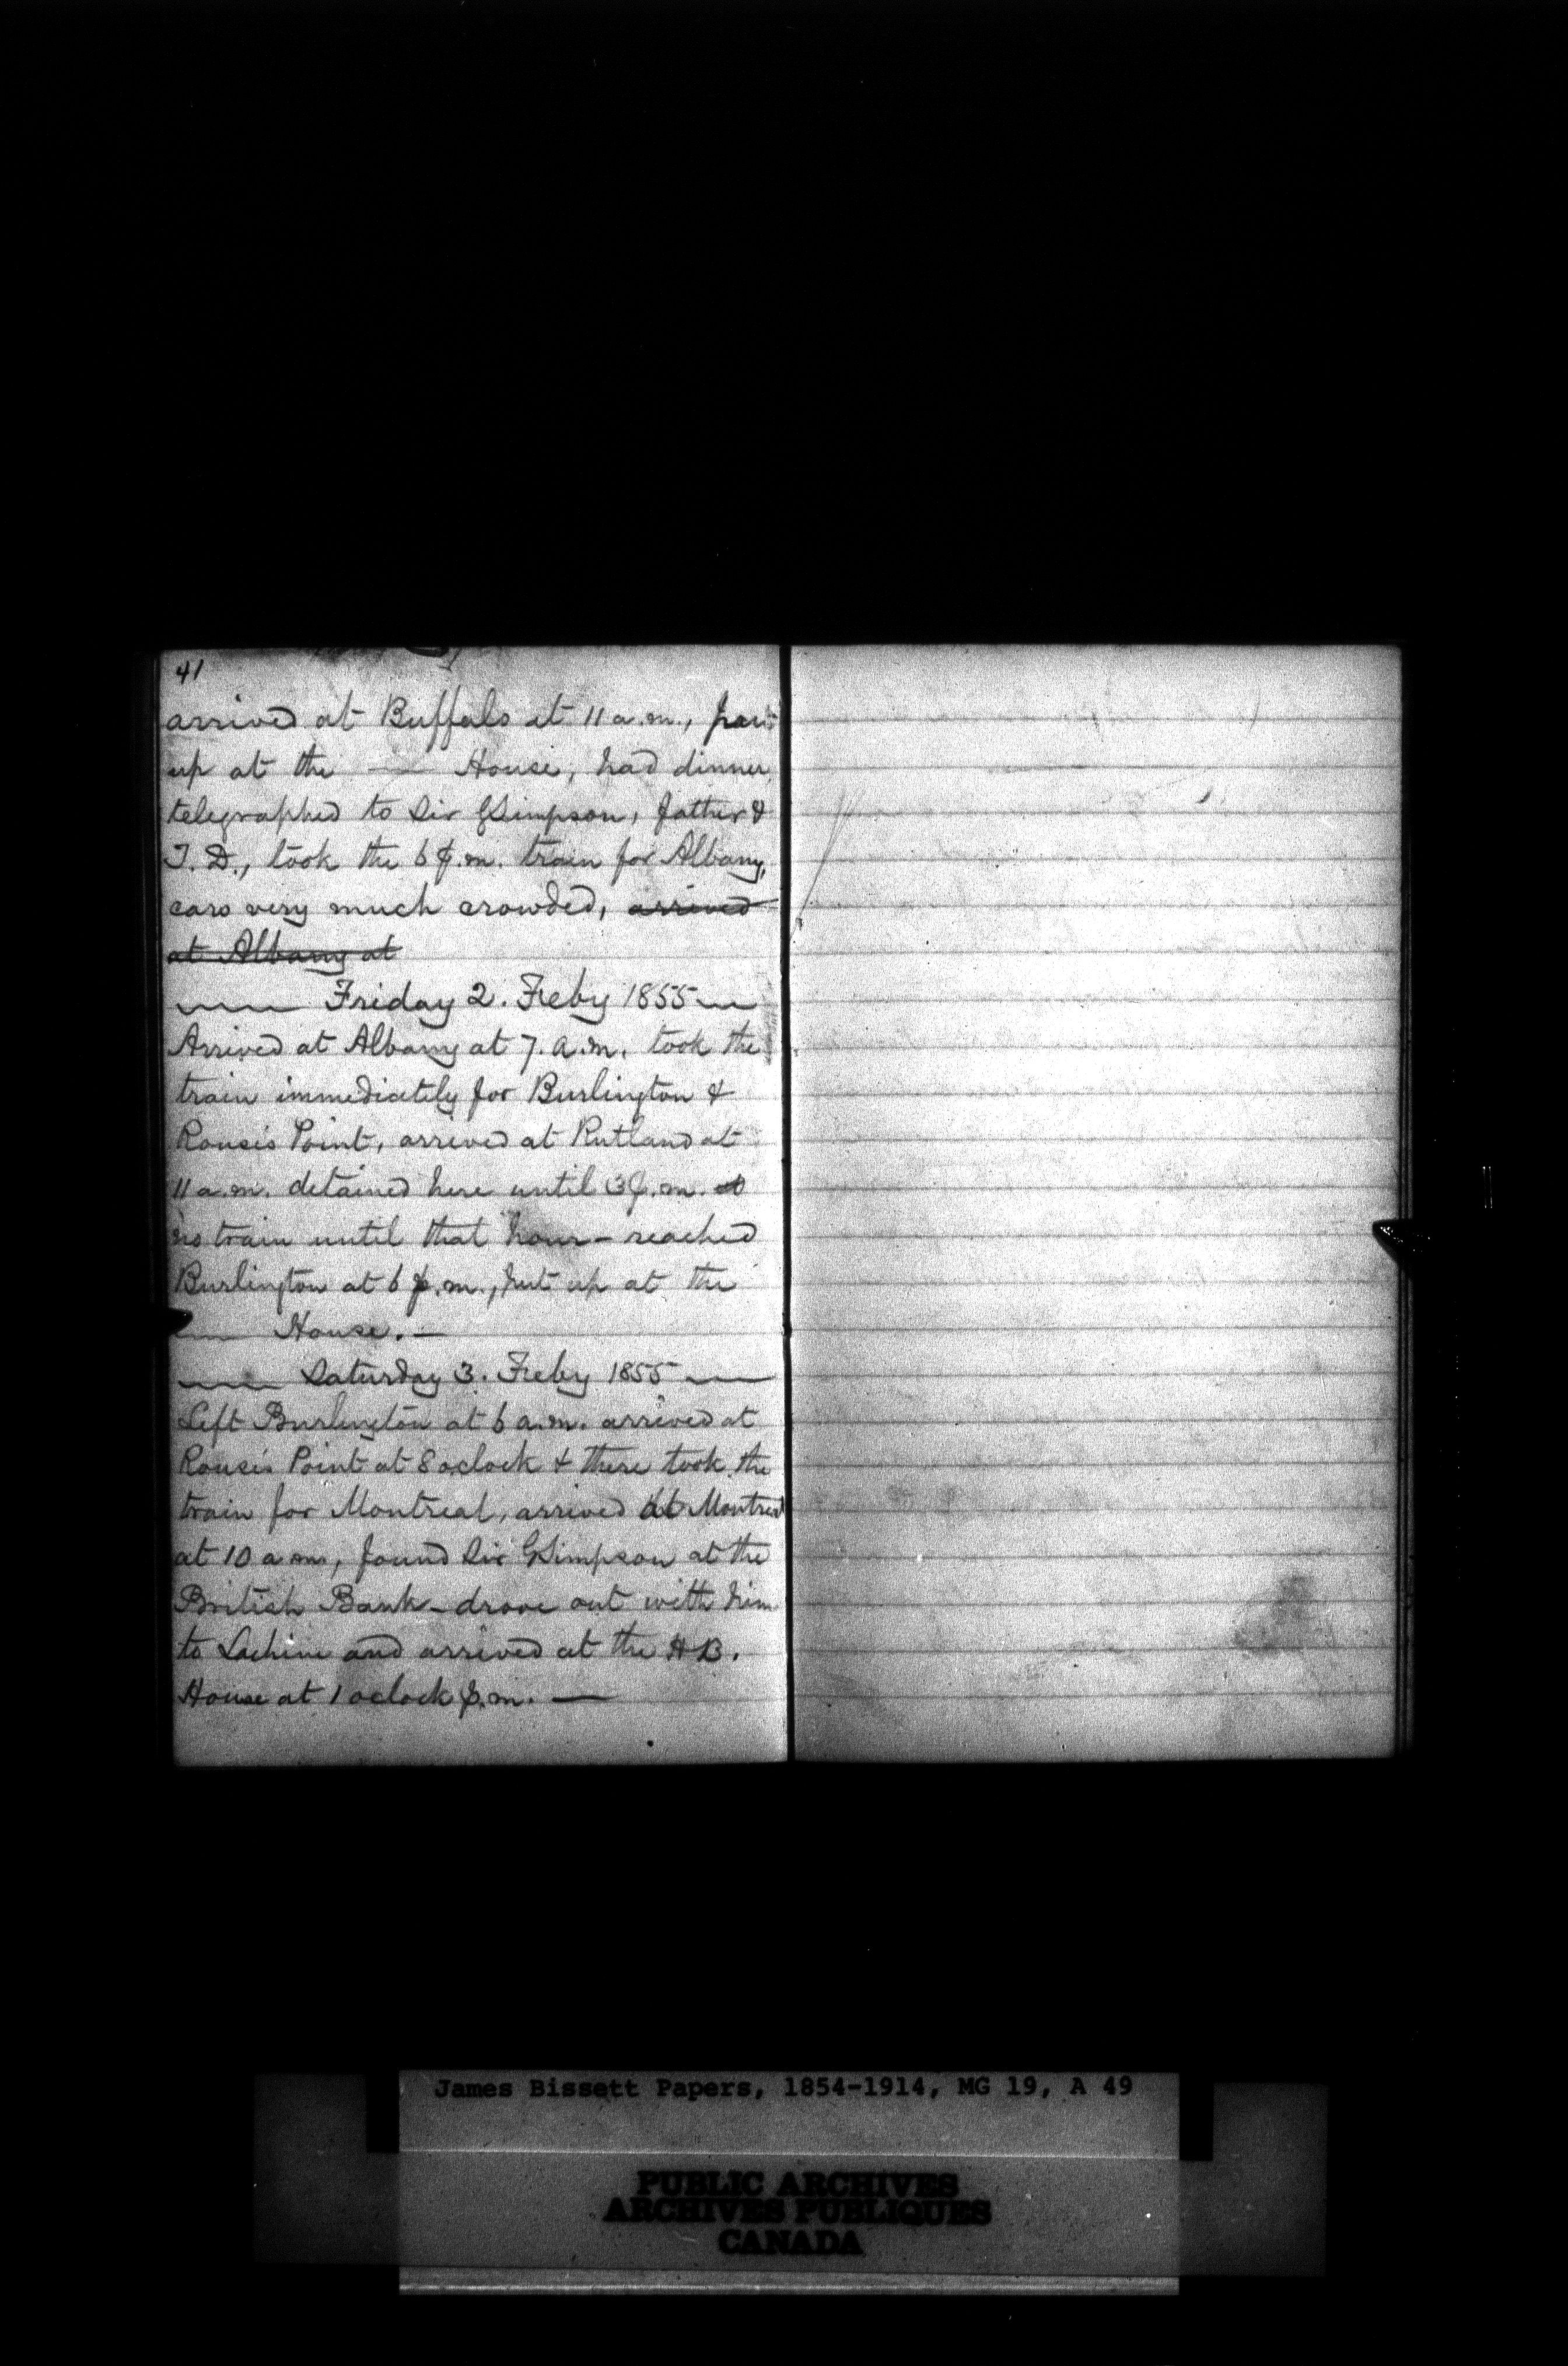 41
arrived at Buffalo at 11 a.m.,
up at the — House, had dinner,
telegraphed to Sir GSimpson, father &
T. D., took the 6 p.m. train for Albany,
cars very much crowded, arrived
at Albany at
Friday 2. Feby 1855
Arrived at Albany at 7. a.m. took the
train immediately for Burlington &
Rouse's Point, arrived at Rutland at
11 a.m. detained here until 3 p.m.
no train until that hour - reached
Burlington at 6 p.m., put up at the
— House. —
Saturday 3. Feby 1855
Left Burlington at 6 a.m. arrived at
Rouse's Point at 8 oclock & there took the
train for Montreal, arrived at Montreal
at 10 a.m., found Sir GSimpson at the
British Bank - drove out with him
to Lachine and arrived at the H B.
House at 1 oclock p.m. —
James Bissett Papers, 1854-1914, MG 19, A 49
PUBLIC ARCHIVES
ARCHIVES PUBLIQUES
CANADA